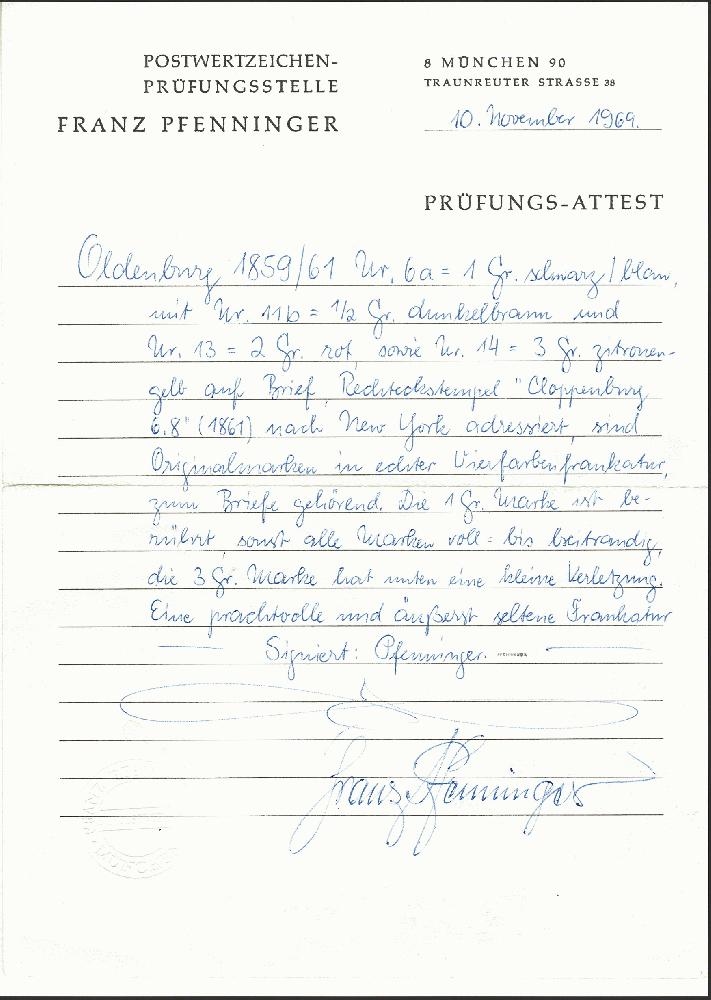 POSTWERTZEICHEN-
PRÜFUNGSSTELLE
FRANZ PFENNINGER
8 MÜNCHEN 90
TRAUNREUTER STRASSE 38
10. November 1969.
PRÜFUNGS-ATTEST
Oldenburg 1859/61 Nr. 6a = 1 Gr. schwarz/blau,
mit Nr. 11b = 1/2 Gr. dunkelbraun und
Nr. 13 = 2 Gr. rot, sowie Nr. 14 = 3 Gr. zitronen-
gelb auf Brief, Rechteckstempel "Cloppenburg
6.8" (1861) nach New York adressiert, sind
Originalmarken in echter Vierfarbenfrankatur,
zum Briefe gehörend. Die 1 Gr. Marke ist be-
rührt, sonst alle Marken voll- bis breitrandig,
die 3 Gr. Marke hat unten eine kleine Verletzung.
Eine prachtvolle und äußerst seltene Frankatur
Signiert: Pfenninger.
Franz Pfenninger